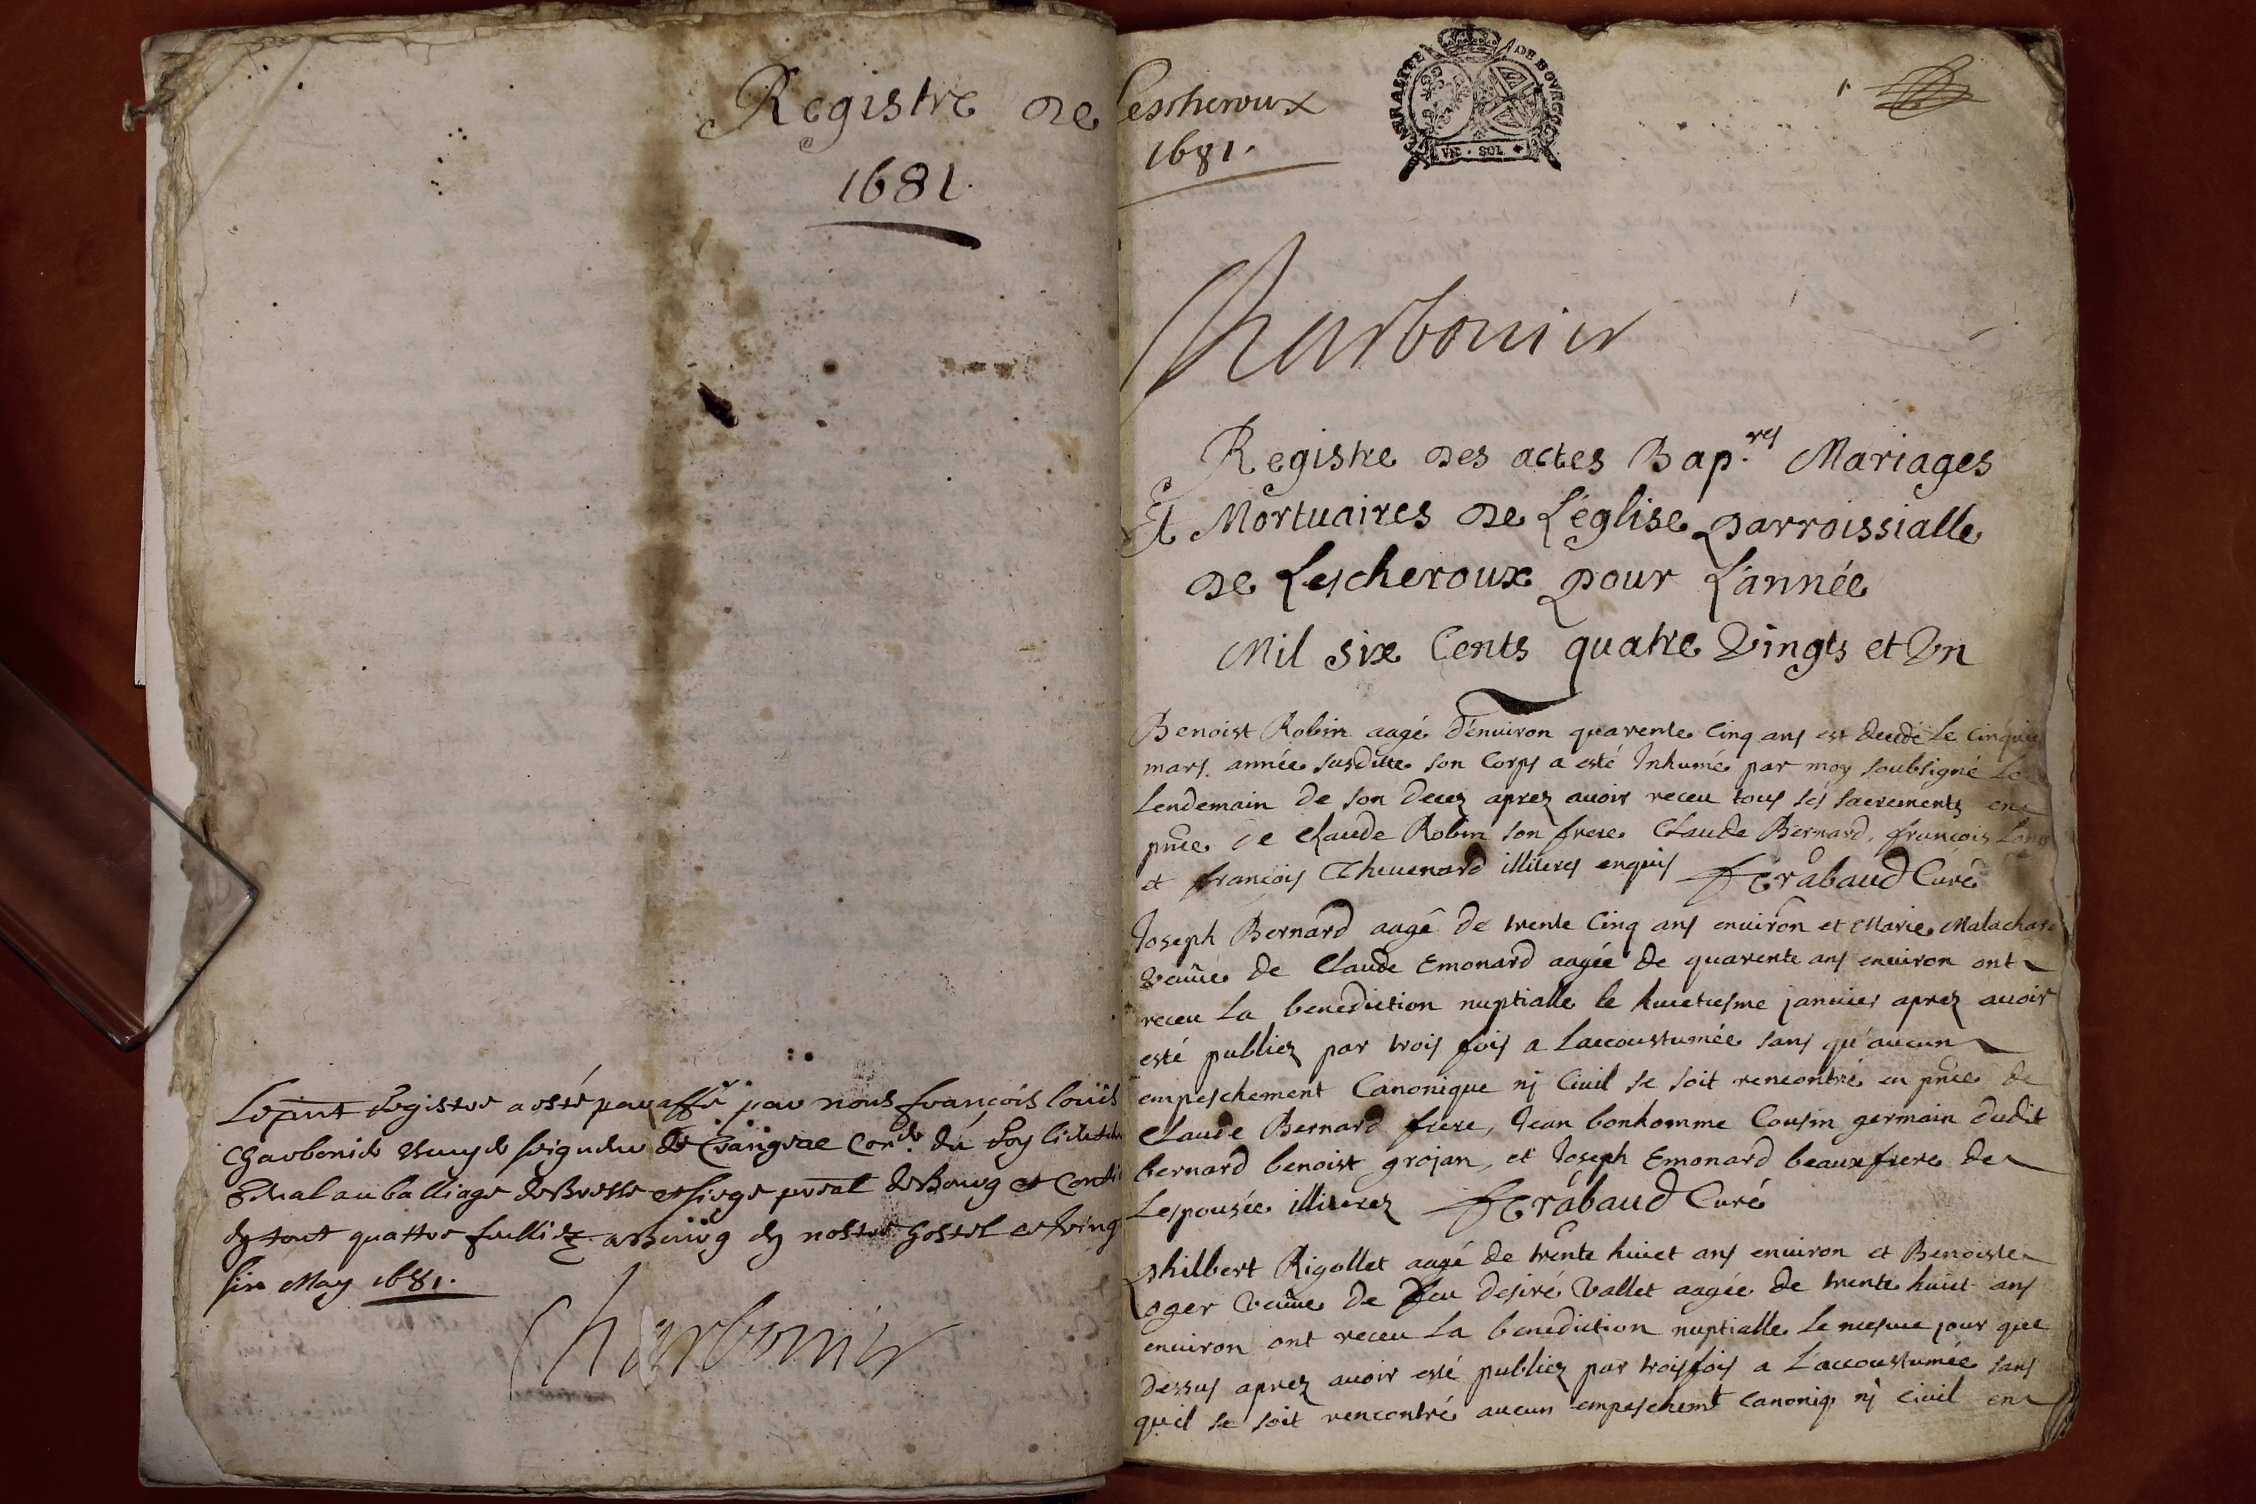 Registre de
1681.
Le pnt Registre a esté paraffé par nous françois louis
Charbonier seigneur de Crangeac Con.er du Roy
au balliage de Bresse et siege pnal de Bourg et
quattre a Bourg en nostre hostel et ving
six May 1681.
Charbonier
Lescheroux
1681.
GENERALITÉ DE BOURGOGNE
VN · SOL
1
Charbonier
Registre des actes Bap.res Mariages
Et Mortuaires de L'église parroissialle
de Lescheroux pour L'année
Mil six Cents quatre Vingts et Vn
Benoist Robin aagé d'enuiron quarente Cinq ans est decedé Le Cinquie
mars. année susditte son Corps a esté Inhumé par moy soubsigné Le
Lendemain de son decez aprez auoir receu tous ses sacrements en
pnce de Claude Robin son frere Claude Bernard, françois
et françois Theuenard illiteres enquis Ferabaud Curé
Joseph Bernard aagé de trente Cinq ans enuiron et Marie Malachar
veuue de Claude Emonard aagée de quarente ans enuiron ont
receu La benediction nuptialle le huictiesme januier aprez auoir
esté publiez par trois fois a Laccoustumée sans qu'aucun
empeschement Canonique nj Ciuil se soit rencontré en pnce de
Claude Bernard frere, Jean bonhomme Cousin germain dudit
bernard benoist grojan, et Joseph Emonard beaux frere de
Lespousée illiterez Ferabaud Curé
Philbert Rigollet aagé de trente huict ans enuiron et Benoiste
Loger veuue de feu desiré Vallet aagée de trente huict ans
enuiron ont receu La benediction nuptialle Le mesme jour que
dessus aprez auoir esté publiez par trois fois a L'accoustumée sans
qu'il se soit rencontré aucun empeschemt canoniq. nj ciuil en